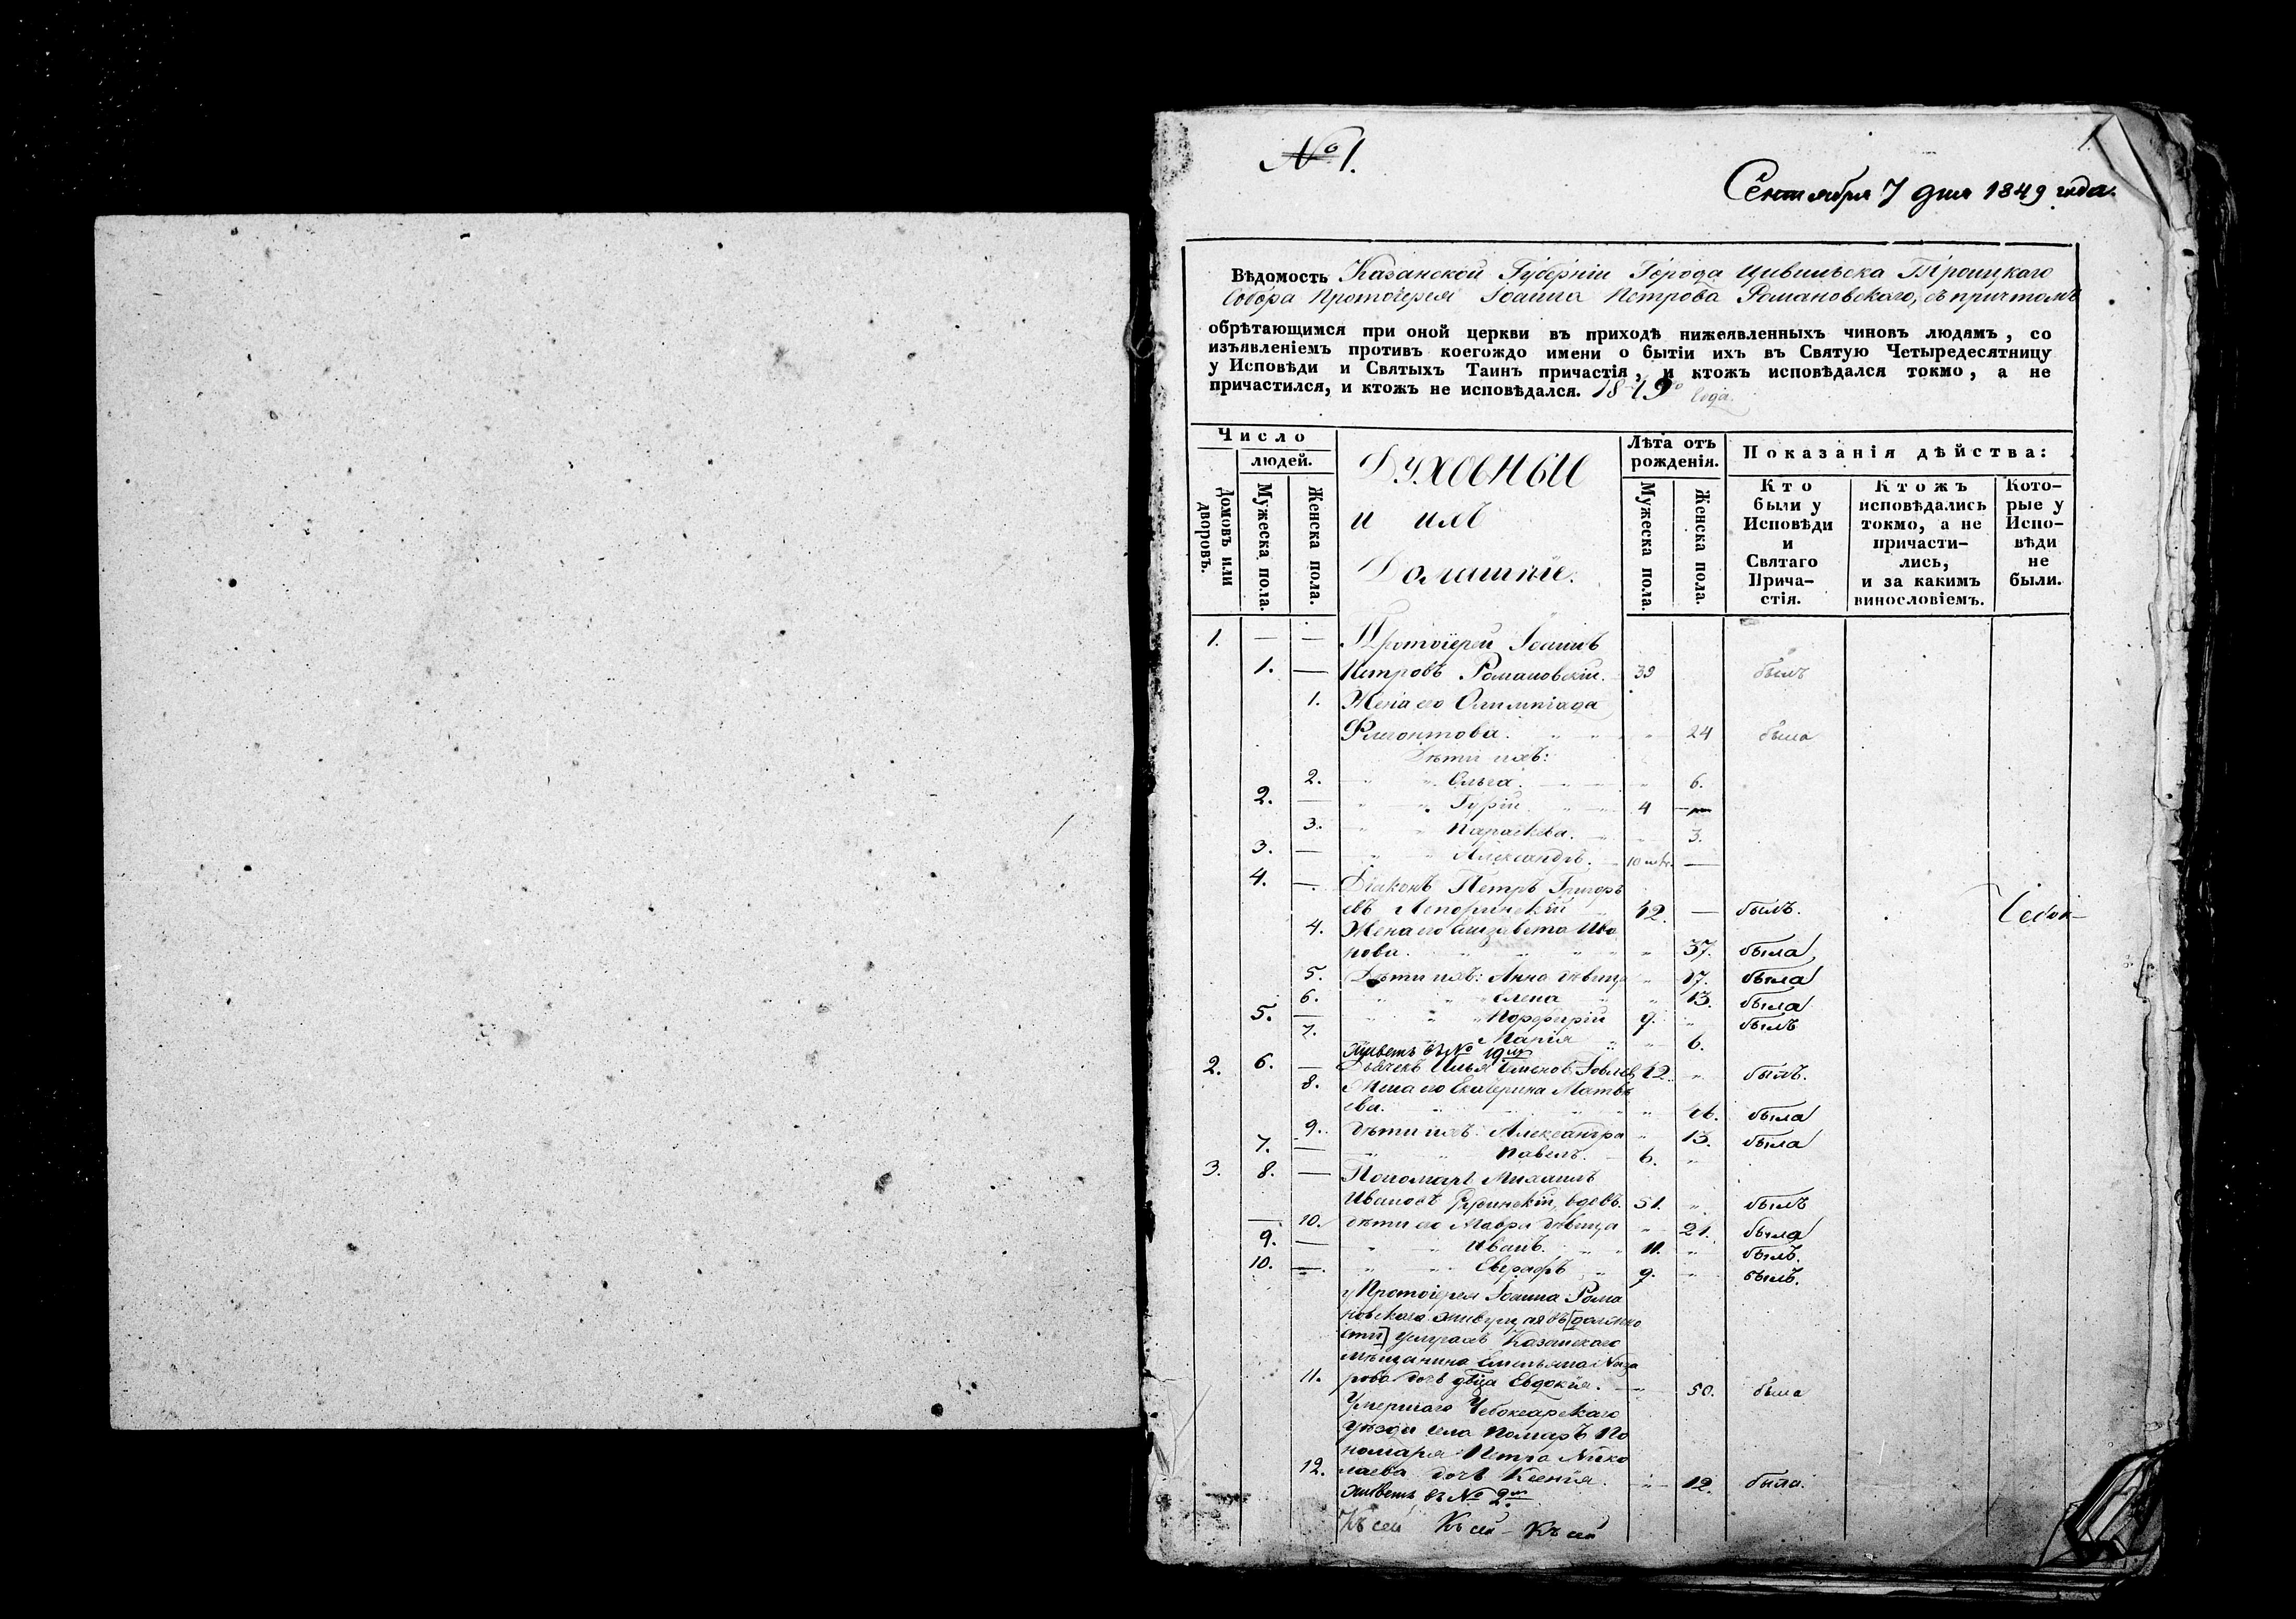 № 1.
1.
Сентября 7 дня 1849 года.
Вѣдомость Казанской Губерніи Города Цивильска Троицкаго
Собора Протоіерея Іоанна Петрова Романовскаго, съ причтомъ
обрѣтающимся при оной церкви въ приходѣ нижеявленныхъ чиновъ людямъ, со
изъявленіемъ противъ коегождо имени о бытіи ихъ въ Святую Четыредесятницу
у Исповѣди и Святыхъ Таинъ причастія, и ктожъ исповѣдался токмо, а не
причастился, и ктожъ не исповѣдался. 1849го года.
Число
людей.
Домовъ или дворовъ.
Мужеска пола.
Женска пола.
Духовные
и ихъ
Домашніе.
Лѣта отъ
рожденія.
Мужеска пола.
Женска пола.
Показанія дѣйства:
Кто
были у
Исповѣди
и
Святаго
Прича-
стія.
Ктожъ
исповѣдались
токмо, а не
причасти-
лись,
и за какимъ
винословіемъ.
Кото-
рые у
Испо-
вѣди
не
были.
1. — — Протоіерей Іоаннъ
1. — Петровъ Романовскій. 39 былъ
1. Жена его Олимпіада
Флегонтова. 24 была
Дѣти ихъ:
2. Ольга. 6.
2. — Гурій. 4 —
3. Параскева. 3.
3. — Александръ. 10 —
4. — Діаконъ Петръ Григорь
евъ Лепоринскій 42. — былъ.
4. Жена его Елизавета Ива
нова. 37. была
5. Дѣти ихъ: Анна дѣвица 17. была
6. Елена 13. была
5. — Порфирій 9. былъ
7. Марія 6.
Живетъ въ № 19мъ
2. 6. — Дьячекъ Илья Семенов 42 былъ.
8. Жена его Екатерина Матвѣ
ева. 46. была
9. дѣти ихъ: Александра 13. была
7. — Павелъ. 6.
3. 8. — Пономарь Михаилъ
Ивановъ вдовъ. 51. былъ
— 10. дѣти его Мавра дѣвица 21. была
9. — Иванъ. 11. былъ.
10. — Евграфъ 9. былъ.
у Протоіерея Іоанна Рома
новскаго живущая въ
услугахъ Казанскаго
мѣщанина Емельяна Наза
11. рова дочь дѣвца Евдокія. — 50. была
Умершаго Чебоксарскаго
уѣзда села Помаръ По
номаря Петра Нико
12. лаева дочь Ксенія. 12. была.
Живетъ въ № 2мъ
Къ сей Къ сей – Къ сей